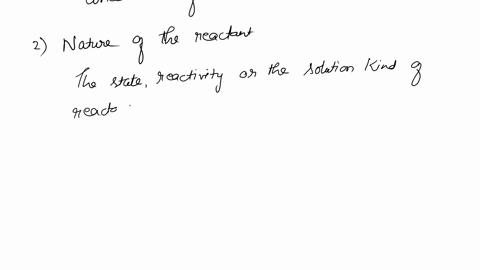 2) Nature of the reactant
The state, reactivity or the solution kind of
reacto